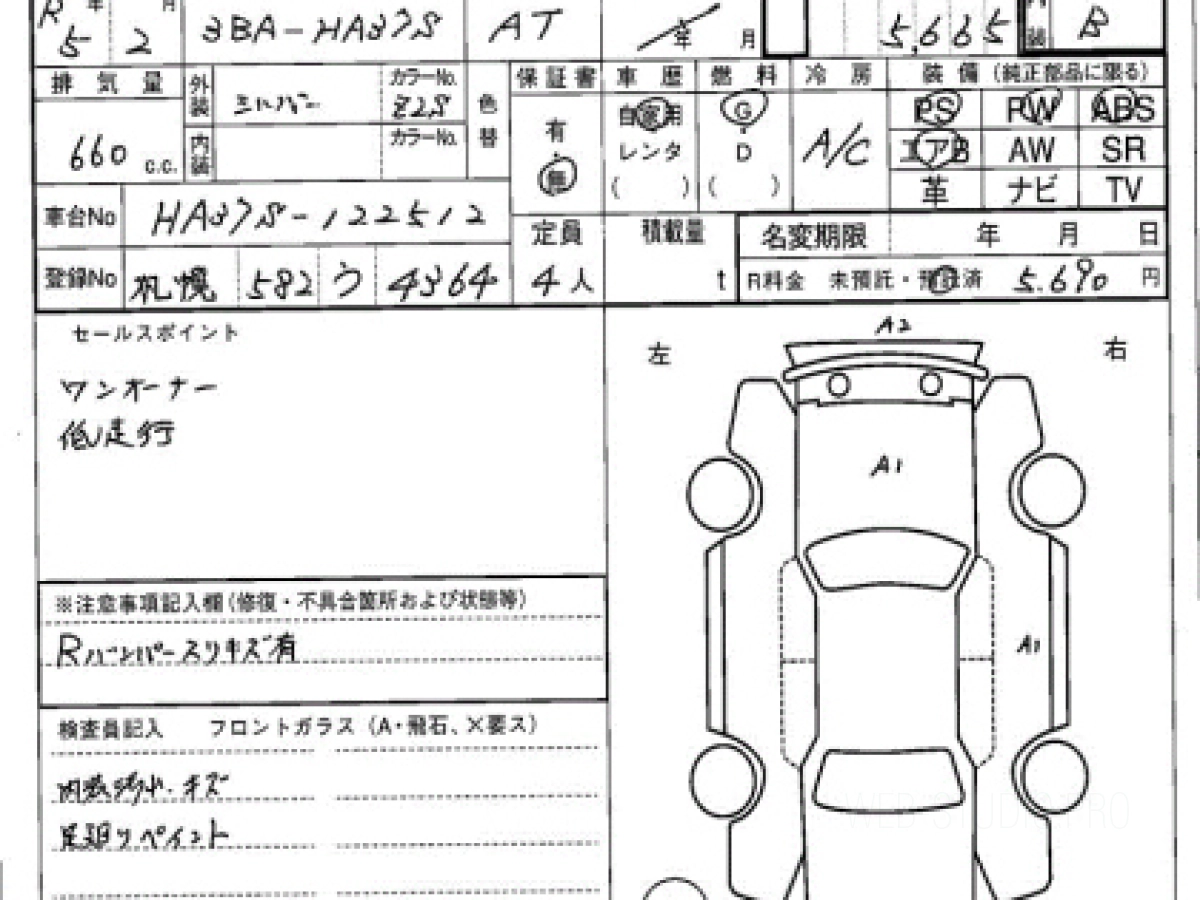 R 年 月 3BA-HA37S AT 年 月 5,665 装 B
5 2
排気量 外装 シルバー カラーNo. Z2S 色替 保証書 車歴 燃料 冷房 装備 (純正部品に限る)
660 c.c. 内装 カラーNo. 有・無 自家用 G・D A/C PS PW ABS
レンタ エアB AW SR
( ) ( ) 革 ナビ TV
車台No HA37S-122512 定員 積載量 名変期限 年 月 日
登録No 札幌 582 う 4364 4人 t R料金 未預託・預託済 5.690 円
セールスポイント
ワンオーナー
低走行
※注意事項記入欄(修復・不具合箇所および状態等)
Rバンパースリキズ有
検査員記入 フロントガラス (A・飛石、X要ス)
内装汚れ・キズ
足廻りペイント
A2
左 右
A1
A1